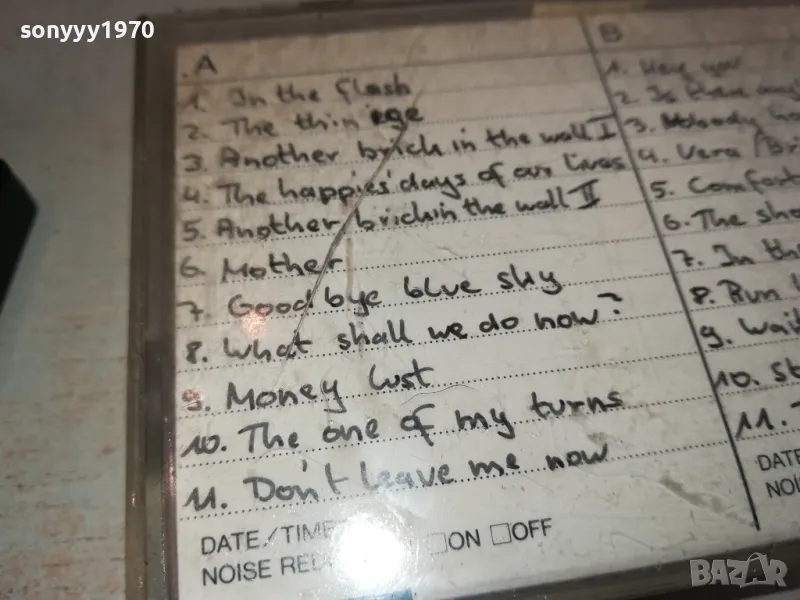 sonyyy1970
A
1. In the flash
2. The thin ige
3. Another brich in the wall I
4. The happies' days of our lives
5. Another brichin the wall II
6. Mother
7. Good bye blue sky
8. What shall we do now?
9. Money lust
10. The one of my turns
11. Don't leave me now
DATE/TIME
NOISE RED ON OFF
B
1. Hey you
2. Is there any
3. Nobody ho
4. Vera / Bri
5. Comfort
6. The sho
7. In th
8. Run
9. Wait
10. St
11.
DATE
NOI
BAZAR